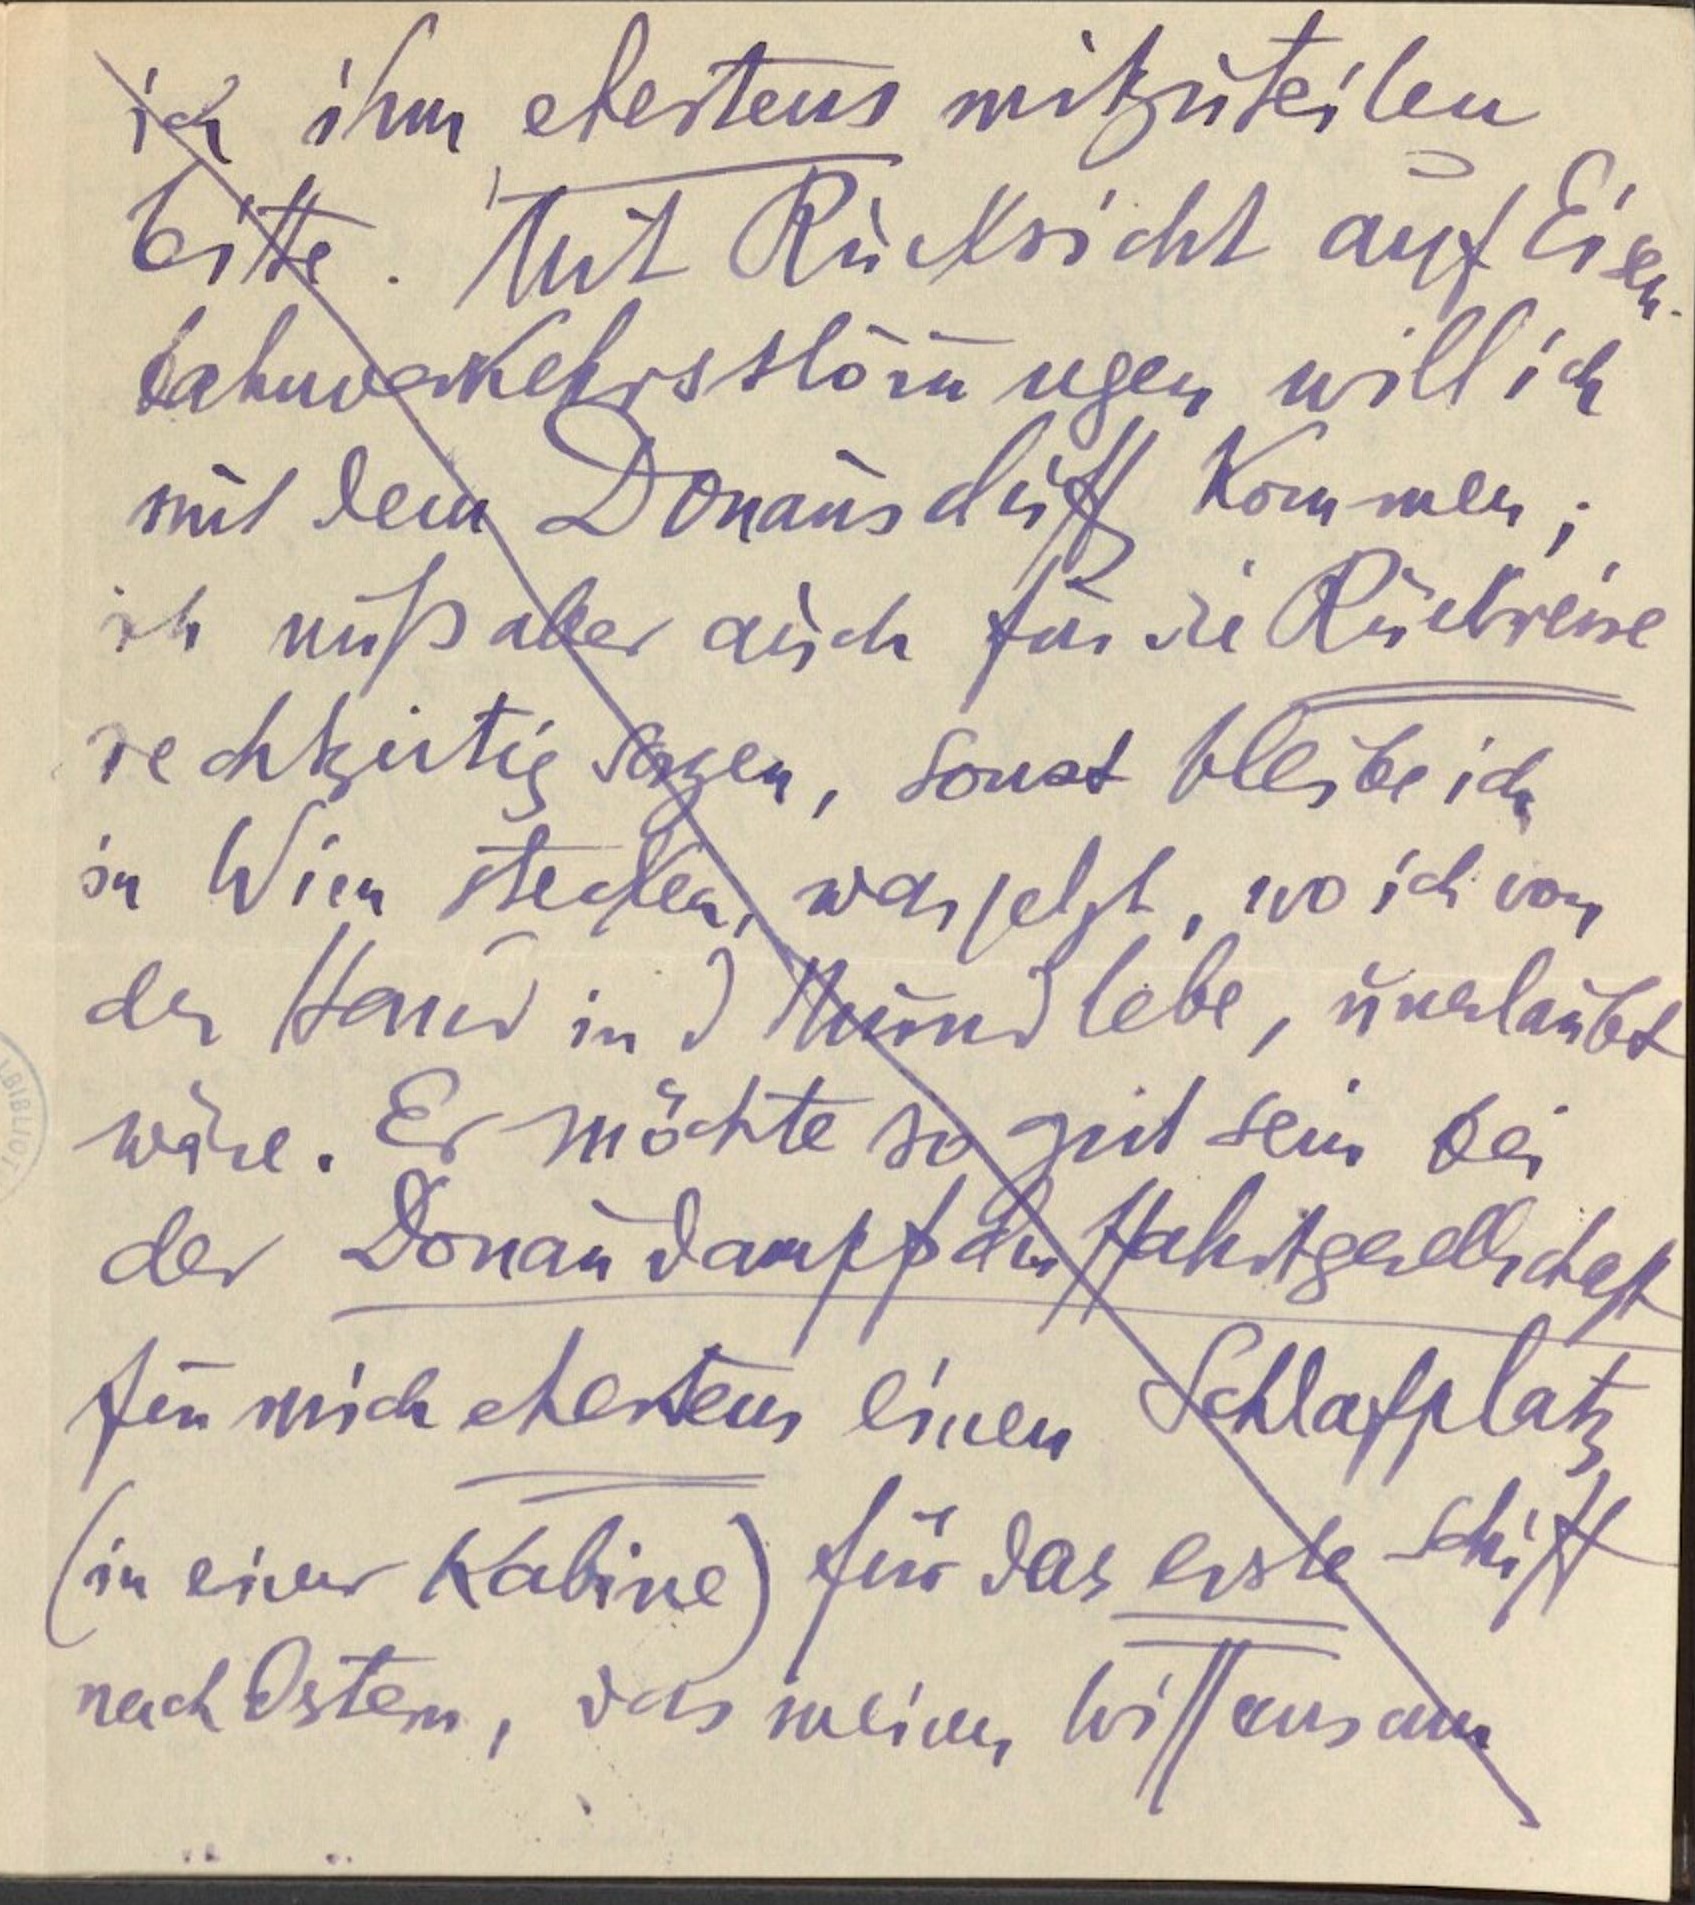 ich ihm ehestens mitzuteilen
bitte. Mit Rücksicht auf Eisen-
bahnverkehrsstörungen will ich
mit dem Donauschiff kommen;
ich muß aber auch für die Rückreise
rechtzeitig sorgen, sonst bleibe ich
in Wien stecken, was jetzt, wo ich von
der Hand in d Mund lebe, unerlaubt
wäre. Er möchte so gut sein bei
der Donaudampfschiffahrtgesellschaft
für mich ehestens einen Schlafplatz
(in einer Kabine) für das erste Schiff
nach Ostern, das meines Wissens am